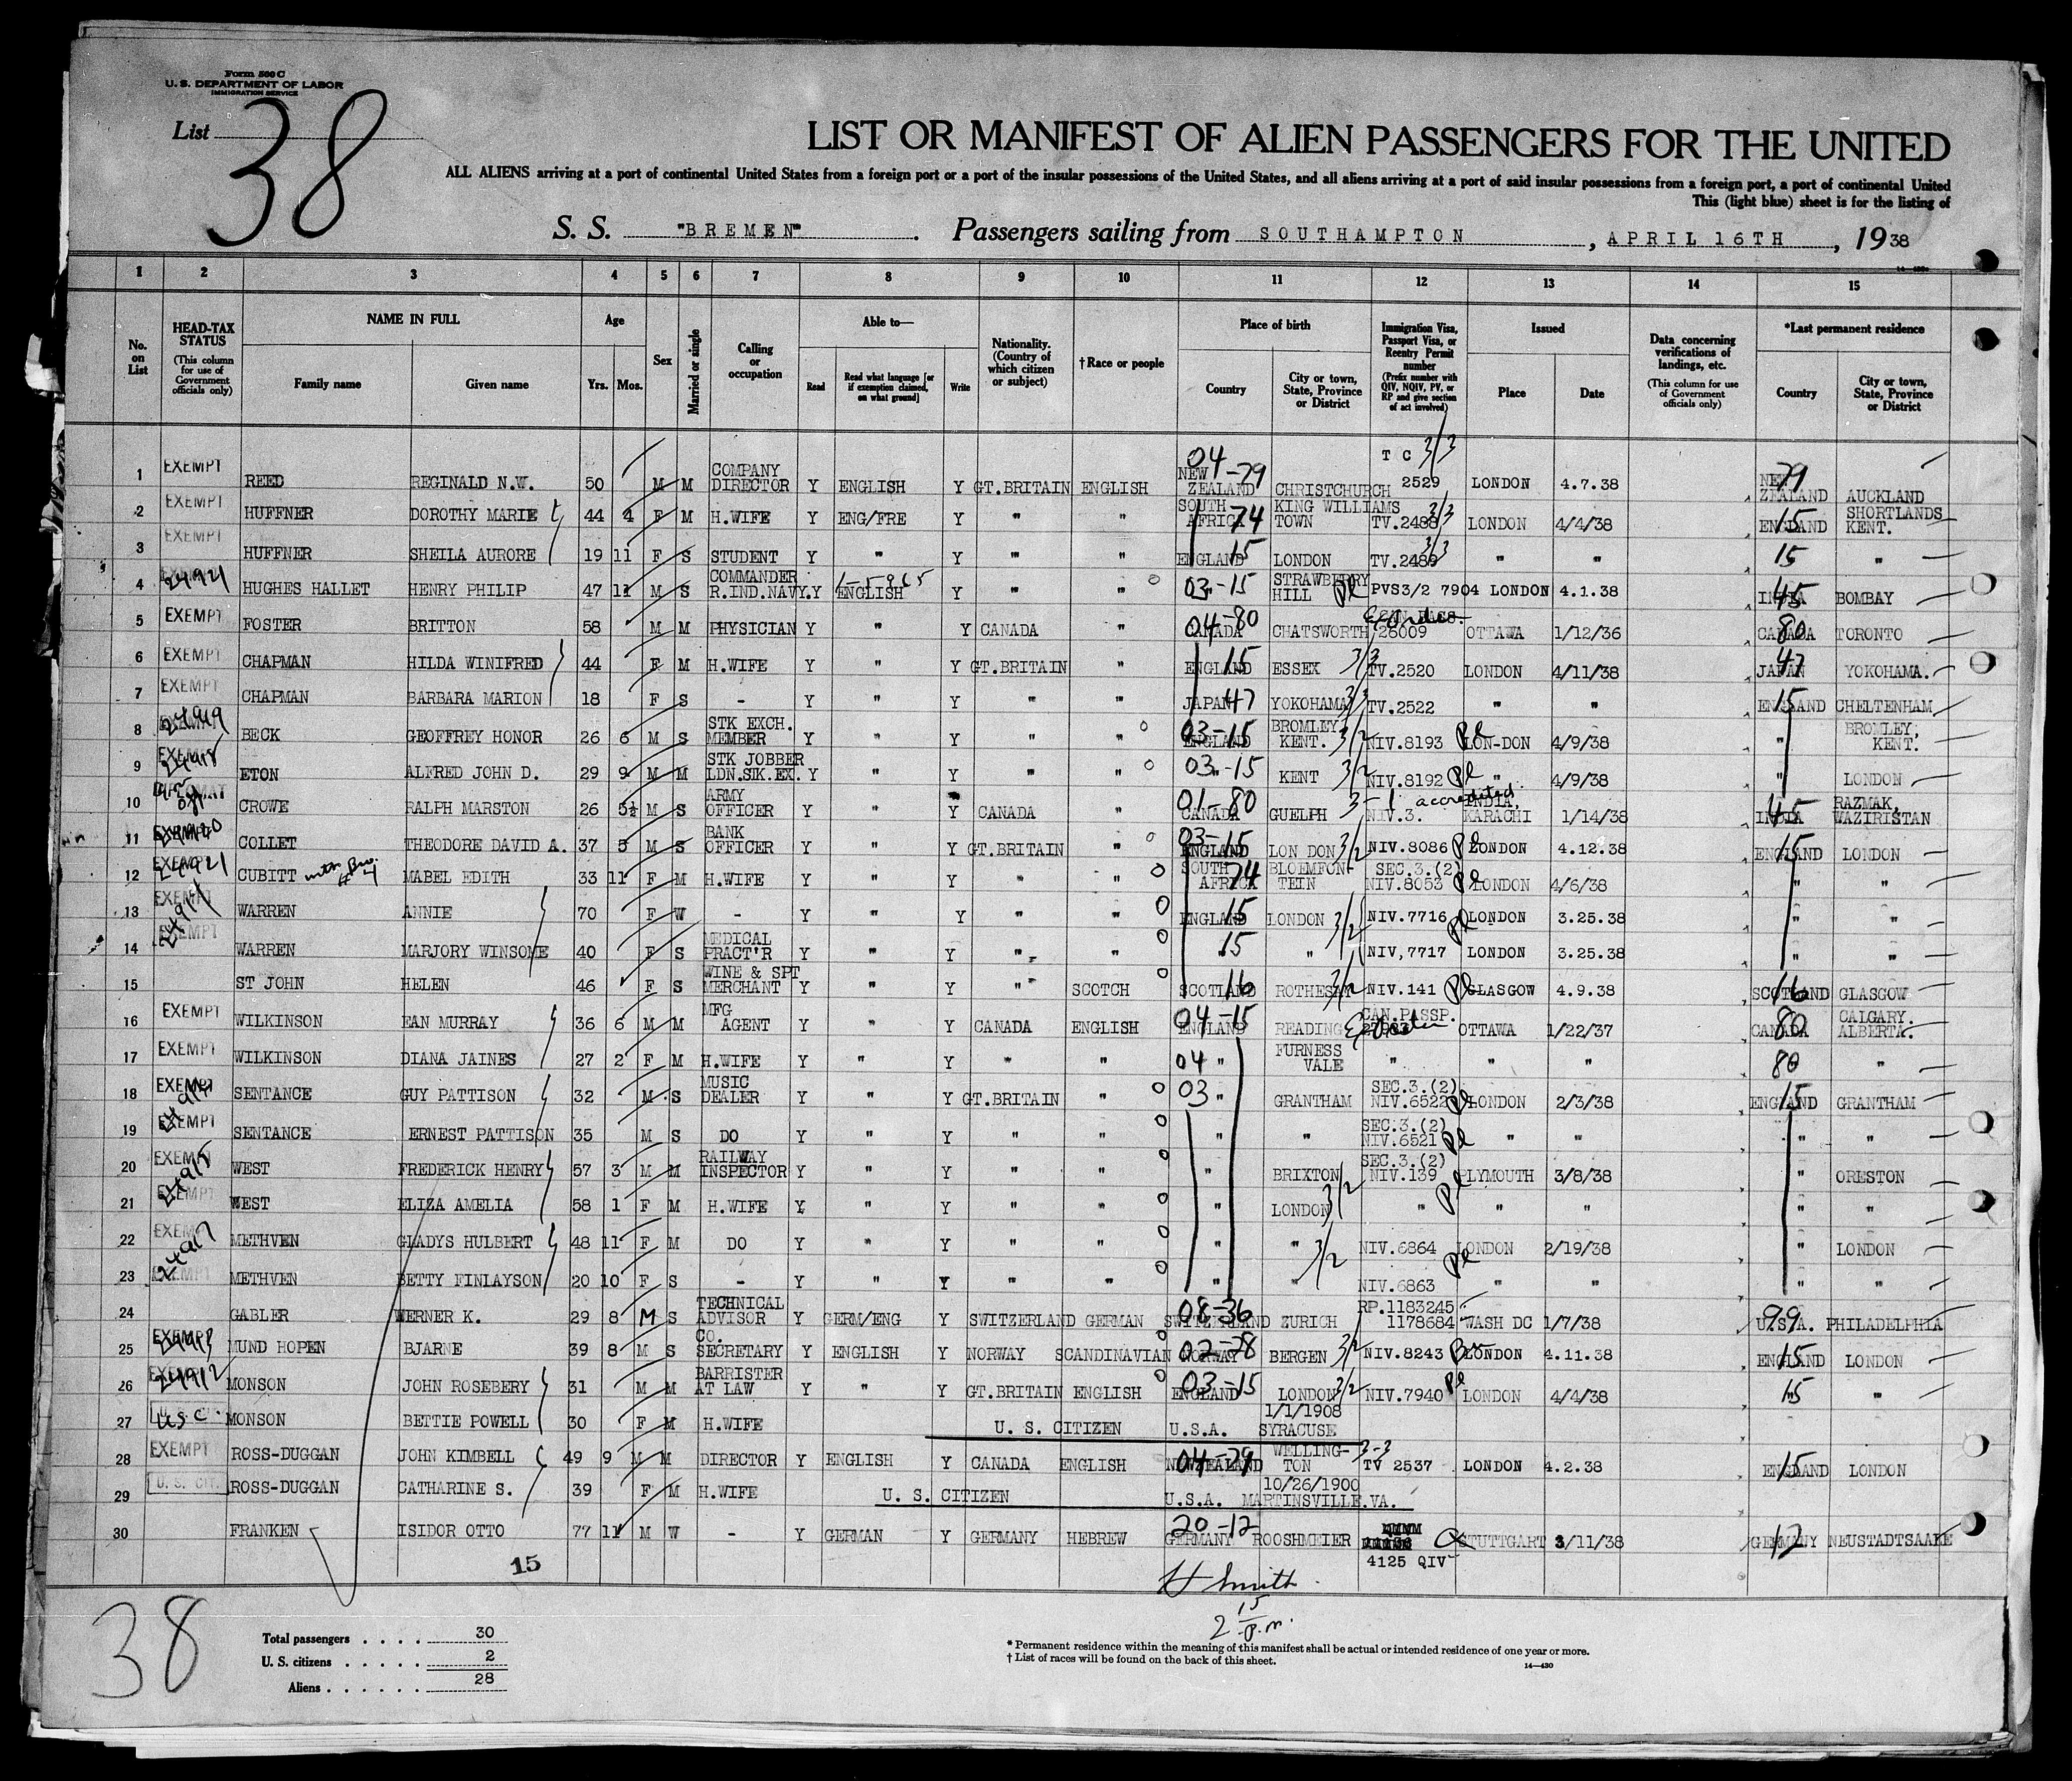 Form 500 C
U. S. DEPARTMENT OF LABOR
IMMIGRATION SERVICE
List 38
LIST OR MANIFEST OF ALIEN PASSENGERS FOR THE UNITED
ALL ALIENS arriving at a port of continental United States from a foreign port or a port of the insular possessions of the United States, and all aliens arriving at a port of said insular possessions from a foreign port, a port of continental United
This (light blue) sheet is for the listing of
S. S. "BREMEN". Passengers sailing from SOUTHAMPTON, APRIL 16TH, 1938
1 2 3 4 5 6 7 8 9 10 11 12 13 14 15
No. on List
HEAD-TAX STATUS (This column for use of Government officials only)
NAME IN FULL Family name Given name
Age Yrs. Mos.
Sex
Married or single
Calling or occupation
Able to— Read Read what language [or if exemption claimed, on what ground] Write
Nationality. (Country of which citizen or subject)
†Race or people
Place of birth Country City or town, State, Province or District
Immigration Visa, Passport Visa, or Reentry Permit number (Prefix number with QIV, NQIV, PV, or RP and give section of act involved)
Issued Place Date
Data concerning verifications of landings, etc. (This column for use of Government officials only)
*Last permanent residence Country City or town, State, Province or District
1 EXEMPT REED REGINALD N.W. 50 M M COMPANY DIRECTOR Y ENGLISH Y GT.BRITAIN ENGLISH 04-79 NEW ZEALAND CHRISTCHURCH T C 3/3 2529 LONDON 4.7.38 79 NEW ZEALAND AUCKLAND
2 EXEMPT HUFFNER DOROTHY MARIE 44 4 F M H.WIFE Y ENG/FRE Y " " SOUTH AFRICA 74 KING WILLIAMS TOWN TV.2488 3/3 LONDON 4/4/38 15 ENGLAND SHORTLANDS KENT.
3 EXEMPT HUFFNER SHEILA AURORE 19 11 F S STUDENT Y " Y " " ENGLAND 15 LONDON TV.2489 3/3 " " 15 "
4 24921 HUGHES HALLET HENRY PHILIP 47 11 M S COMMANDER R.IND.NAVY. Y ENGLISH Y " " 03-15 " STRAWBERRY HILL PVS3/2 7904 LONDON 4.1.38 45 INDIA BOMBAY
5 EXEMPT FOSTER BRITTON 58 M M PHYSICIAN Y " Y CANADA " 04-80 CANADA CHATSWORTH 26009 OTTAWA 1/12/36 80 CANADA TORONTO
6 EXEMPT CHAPMAN HILDA WINIFRED 44 F M H.WIFE Y " Y GT.BRITAIN " ENGLAND 15 ESSEX 3/3 TV.2520 LONDON 4/11/38 47 JAPAN YOKOHAMA.
7 EXEMPT CHAPMAN BARBARA MARION 18 F S - Y " Y " " JAPAN 47 YOKOHAMA 3/3 TV.2522 " " 15 ENGLAND CHELTENHAM
8 24919 BECK GEOFFREY HONOR 26 6 M S STK EXCH. MEMBER Y " Y " " 03-15 ENGLAND BROMLEY KENT. 3/2 NIV.8193 LON-DON 4/9/38 " BROMLEY, KENT.
9 24918 ETON ALFRED JOHN D. 29 9 M M STK JOBBER LDN.STK.EX. Y " Y " " 03-15 " KENT 3/2 NIV.8192 " 4/9/38 " LONDON
10 CROWE RALPH MARSTON 26 5½ M S ARMY OFFICER Y " Y CANADA " 01-80 CANADA GUELPH 3-1 accredited NIV.3. INDIA, KARACHI 1/14/38 45 INDIA RAZMAK, WAZIRISTAN
11 24920 COLLET THEODORE DAVID A. 37 5 M S BANK OFFICER Y " Y GT.BRITAIN " 03-15 ENGLAND LON DON 3/2 NIV.8086 LONDON 4.12.38 15 ENGLAND LONDON
12 24921 CUBITT with Bro. #4 MABEL EDITH 33 11 F M H.WIFE Y " Y " " SOUTH AFRICA 74 BLOEMFON-TEIN SEC.3.(2) NIV.8053 LONDON 4/6/38 " "
13 EXEMPT WARREN ANNIE 70 F W - Y " Y " " ENGLAND 15 LONDON 3/2 NIV.7716 LONDON 3.25.38 " "
14 EXEMPT WARREN MARJORY WINSOME 40 F S MEDICAL PRACT'R Y " Y " " " 15 " NIV,7717 LONDON 3.25.38 " "
15 ST JOHN HELEN 46 F S WINE & SPT MERCHANT Y " Y " SCOTCH SCOTLAND 16 ROTHESAY 3/2 NIV.141 GLASGOW 4.9.38 16 SCOTLAND GLASGOW
16 EXEMPT WILKINSON EAN MURRAY 36 6 M M MFG AGENT Y " Y CANADA ENGLISH 04-15 ENGLAND READING CAN.PASSP. OTTAWA 1/22/37 80 CANADA CALGARY. ALBERTA.
17 EXEMPT WILKINSON DIANA JAINES 27 2 F M H.WIFE Y " Y " " 04 " FURNESS VALE " " " 80 "
18 EXEMPT SENTANCE GUY PATTISON 32 M S MUSIC DEALER Y " Y GT.BRITAIN " 03 " GRANTHAM SEC.3.(2) NIV.6522 LONDON 2/3/38 15 ENGLAND GRANTHAM
19 EXEMPT SENTANCE ERNEST PATTISON 35 M S DO Y " Y " " " " SEC.3.(2) NIV.6521 " " " "
20 EXEMPT 24915 WEST FREDERICK HENRY 57 3 M M RAILWAY INSPECTOR Y " Y " " " BRIXTON SEC.3.(2) NIV.139 PLYMOUTH 3/8/38 " ORESTON
21 EXEMPT WEST ELIZA AMELIA 58 1 F M H.WIFE Y " Y " " " LONDON 3/2 " " " " "
22 EXEMPT 24917 METHVEN GLADYS HULBERT 48 11 F M DO Y " Y " " " " NIV.6864 LONDON 2/19/38 " LONDON
23 EXEMPT METHVEN BETTY FINLAYSON 20 10 F S - Y " Y " " " " 3/2 NIV.6863 " " " "
24 GABLER WERNER K. 29 8 M S TECHNICAL ADVISOR Y GERM/ENG Y SWITZERLAND GERMAN 08-36 SWITZERLAND ZURICH RP.1183245 1178684 WASH DC 1/7/38 99 U.S.A. PHILADELPHIA
25 EXEMPT 24913 MUND HOPEN BJARNE 39 8 M S CO. SECRETARY Y ENGLISH Y NORWAY SCANDINAVIAN 02-28 NORWAY BERGEN 3/2 NIV.8243 LONDON 4.11.38 15 ENGLAND LONDON
26 EXEMPT 24912 MONSON JOHN ROSEBERY 31 M M BARRISTER AT LAW Y " Y GT.BRITAIN ENGLISH 03-15 ENGLAND LONDON 3/2 NIV.7940 LONDON 4/4/38 15 " "
27 U.S.C. MONSON BETTIE POWELL 30 F M H.WIFE U. S. CITIZEN U.S.A. 1/1/1908 SYRACUSE
28 EXEMPT ROSS-DUGGAN JOHN KIMBELL 49 9 M M DIRECTOR Y ENGLISH Y CANADA ENGLISH 04-79 NEWZEALAND WELLING-TON 3-3 TV 2537 LONDON 4.2.38 15 ENGLAND LONDON
29 U. S. CIT. ROSS-DUGGAN CATHARINE S. 39 F M H.WIFE U. S. CITIZEN U.S.A. 10/26/1900 MARTINSVILLE.VA.
30 FRANKEN ISIDOR OTTO 77 11 M W - Y GERMAN Y GERMANY HEBREW 20-12 GERMANY ROOSHMEIER 4125 QIV STUTTGART 3/11/38 12 GERMANY NEUSTADTSAALE
15
H Smith
2 15 p.m.
38
Total passengers . . . . 30
U. S. citizens . . . . . 2
Aliens . . . . . . 28
* Permanent residence within the meaning of this manifest shall be actual or intended residence of one year or more.
† List of races will be found on the back of this sheet.
14—430